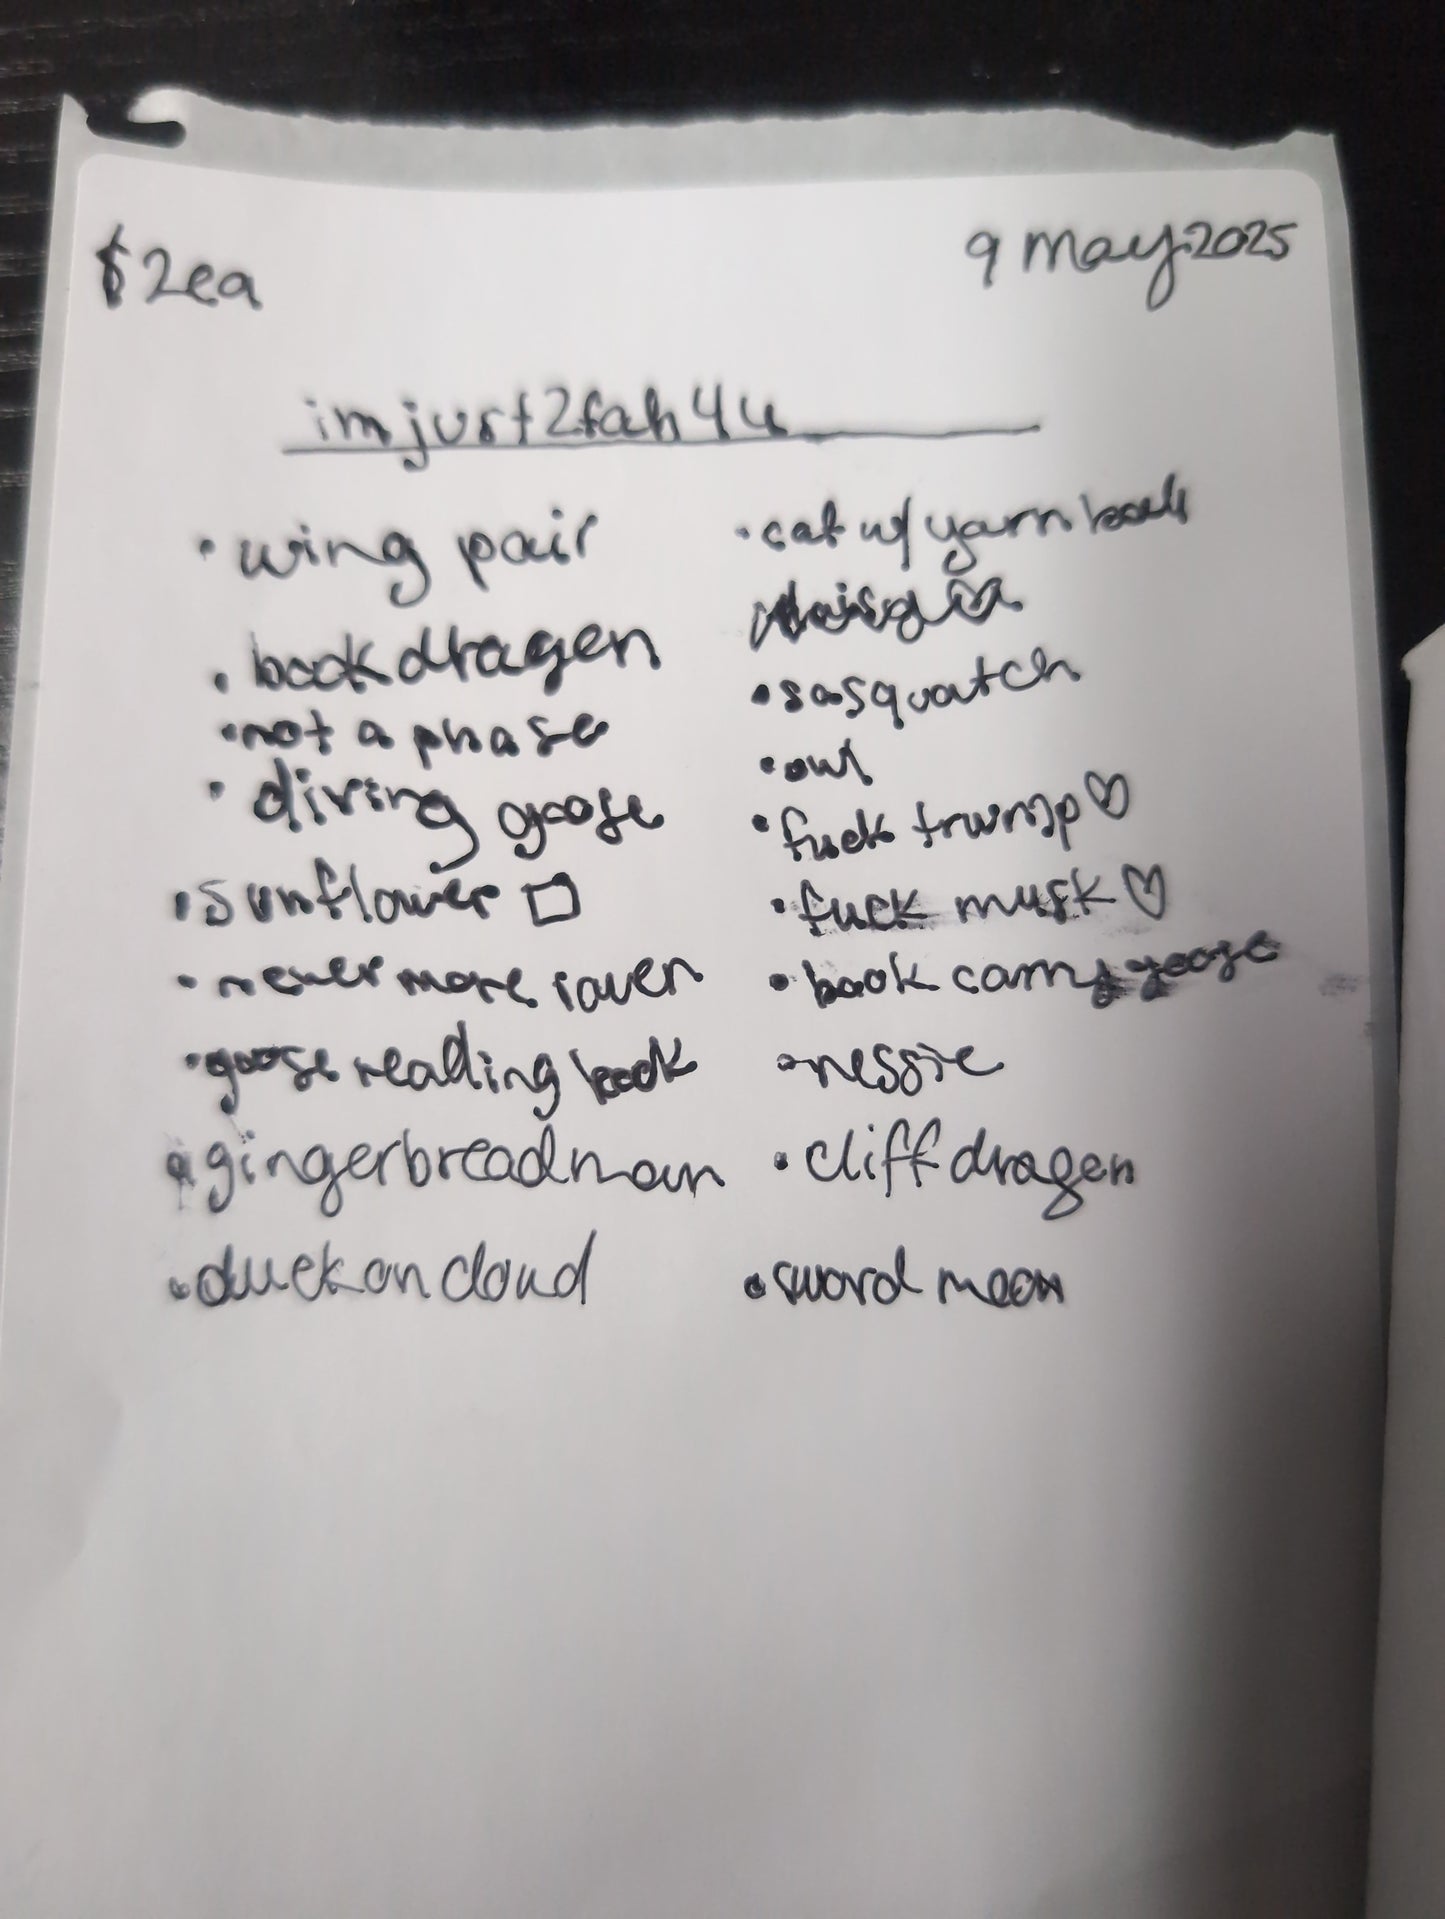 $2ea
9 May 2025
imjust2fah4u
• wing pair
• book dragen
• not a phase
• diving goose
• sunflower □
• never more raven
• goose reading book
• gingerbreadman
• duck on cloud
• cat w/ yarn book
daisy ♡
• sasquatch
• owl
• fuck trump ♡
• fuck musk ♡
• book camp goose
• nessie
• cliff dragen
• sword moon